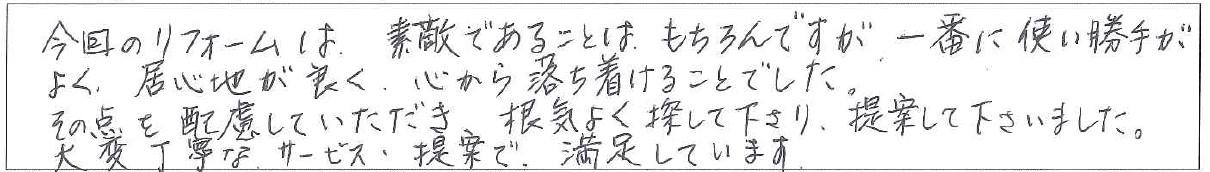 今回のリフォームは、素敵であることは、もちろんですが、一番に使い勝手が
よく、居心地が良く、心から落ち着けることでした。
その点を配慮していただき、根気よく探して下さり、提案して下さいました。
大変丁寧な、サービス・提案で、満足しています